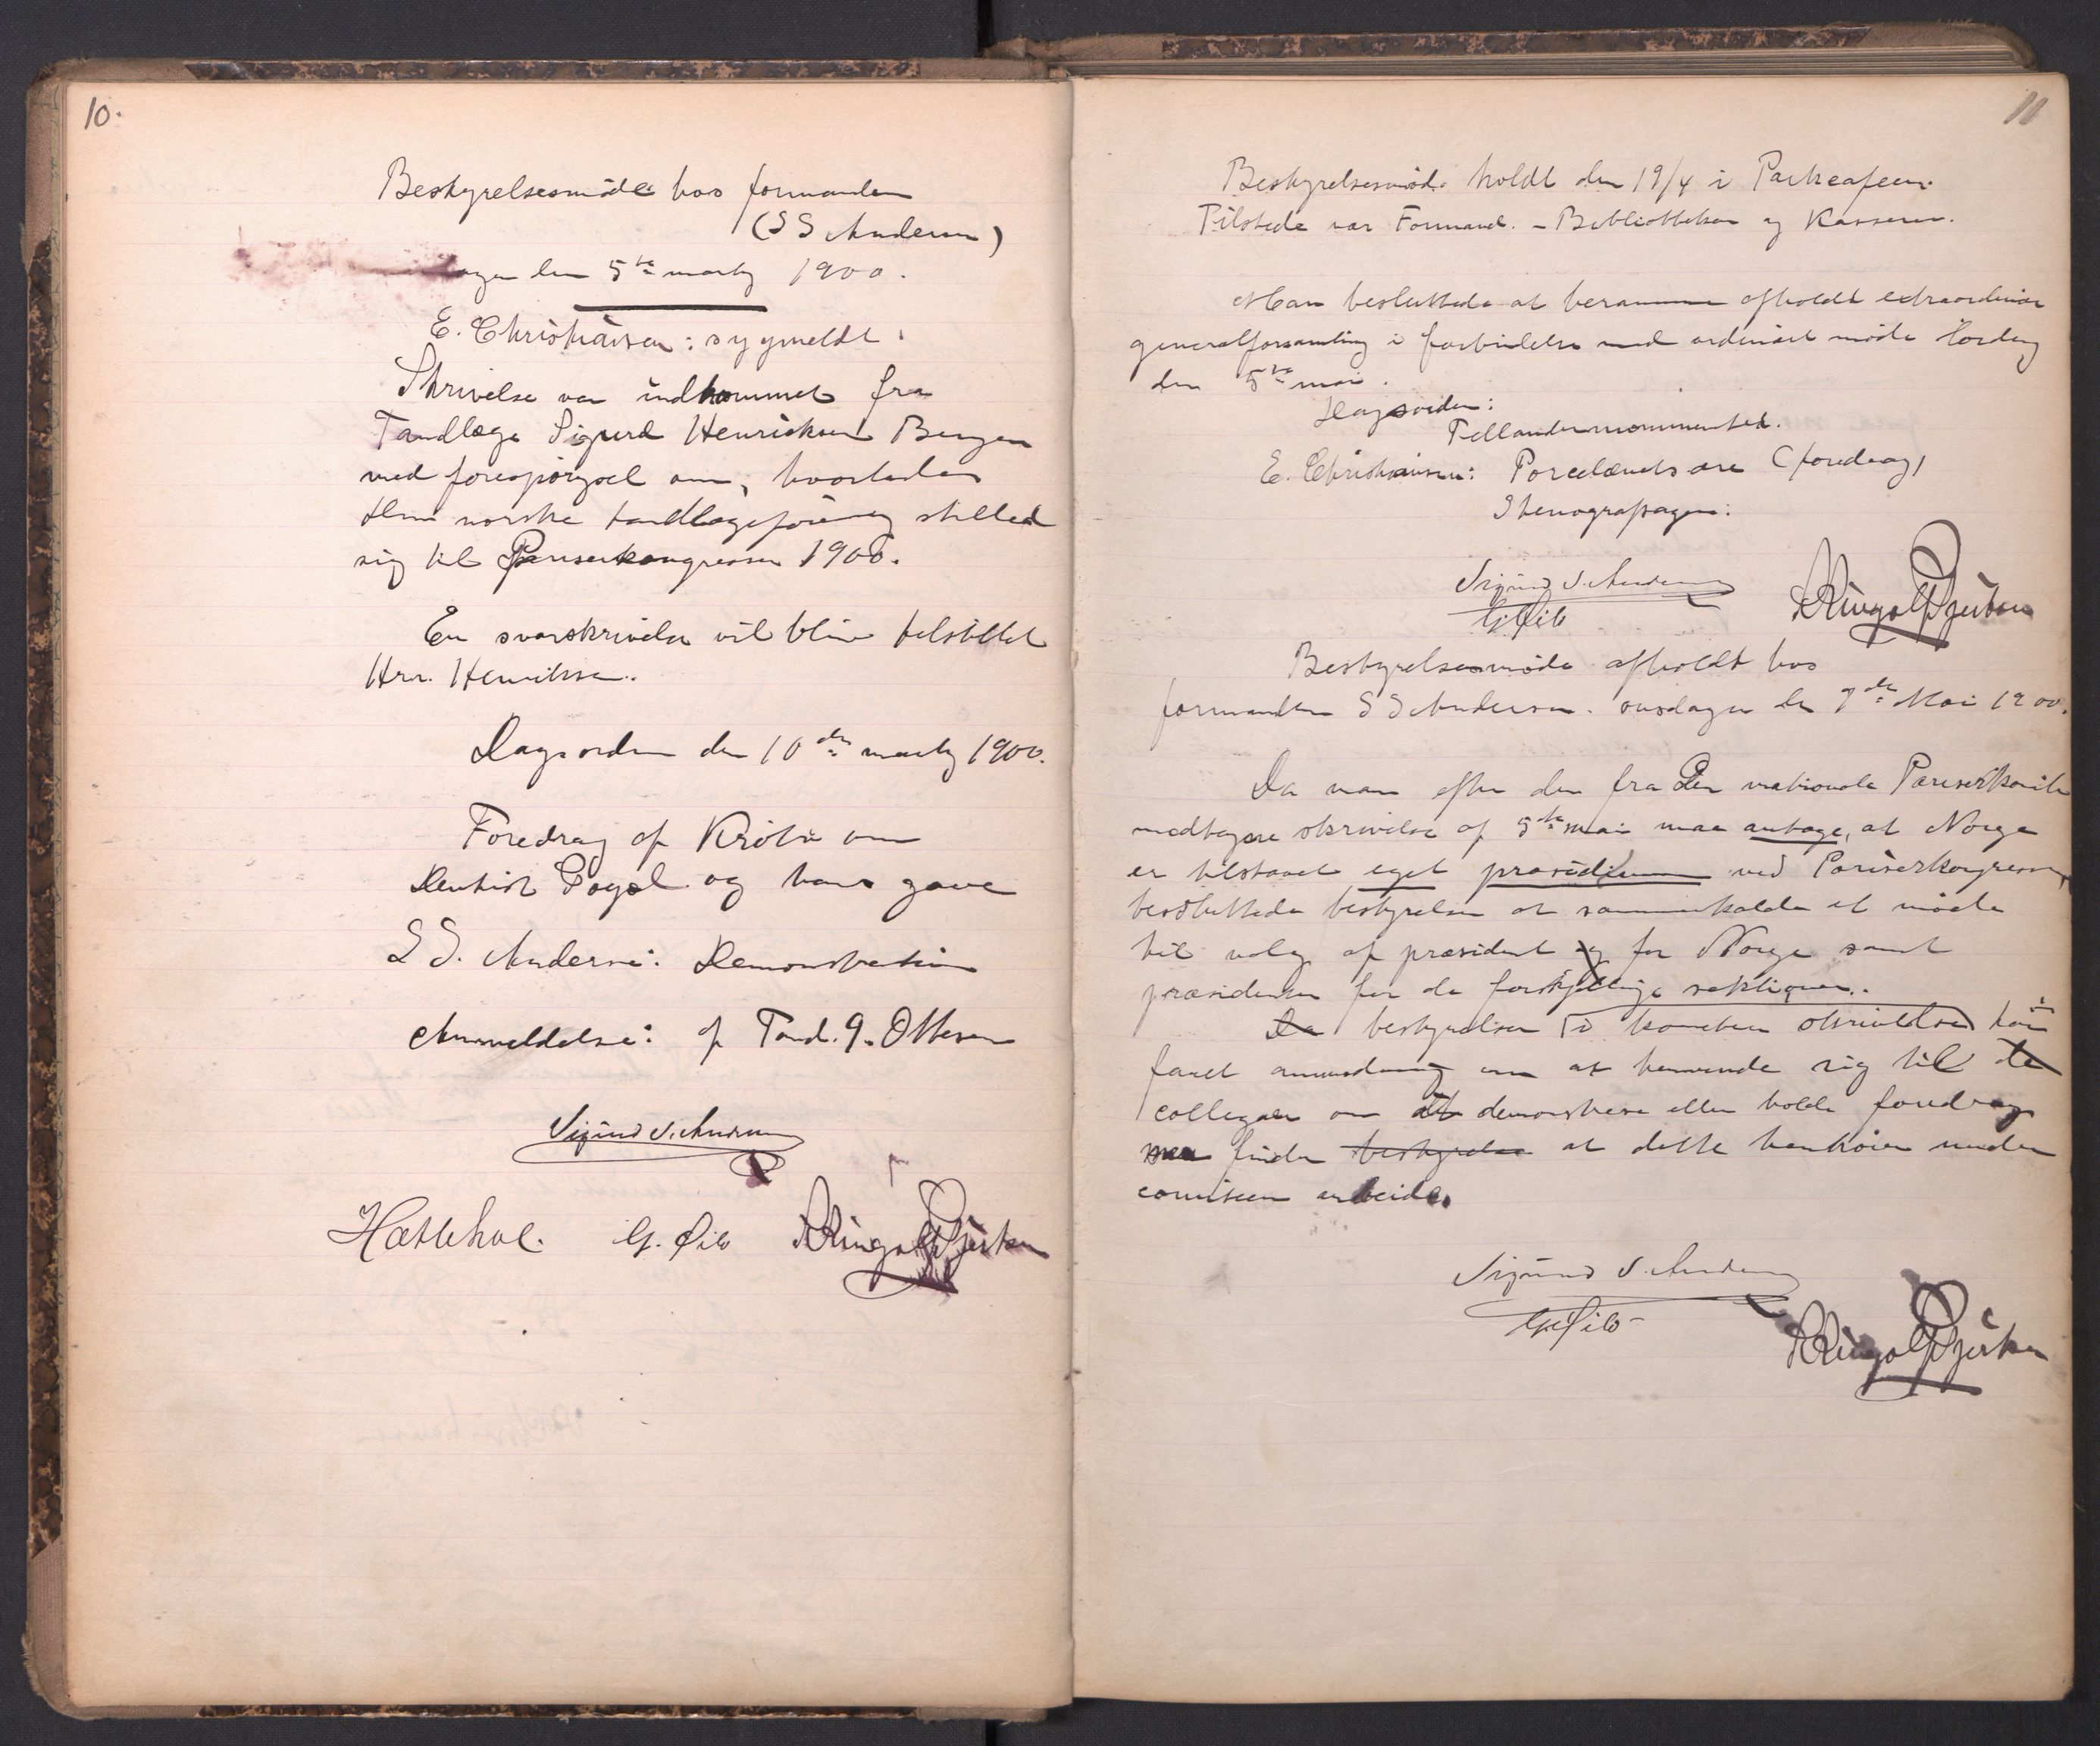 10.
Bestyrelsesmöde hos formanden
(S S Andersen)
den 5te marts 1900.
E. Christiansen: sygmeldt.
Skrivelse var indkommet fra
Tandlæge Sigurd Henriksen Bergen
med forespörgsel om, hvorledes
Den norske tandlægeforening stilled
sig til Pariserkongressen 1900.
En svarskrivelse vil blive tilstillet
Hrr. Henriksen.
Dagsorden den 10de marts 1900.
Foredrag af om
Dentist og hans gave
S S. Andersen: Demonstration
Anmeldelse: af Tand. Ottesen
Sigurd S. Andersen
Hættehol. G. Øilo
11
Bestyrelsesmöde holdt den 19/4 i Parkcafeen.
Tilstede var Formand. - Bibliothekar og Kasserer.
Man besluttede at beramme afholdt extraordinær
generalforsamling i forbindelse med ordinært möde Lördag
den 5te mai.
Dagsorden:
Tellandermonumentet.
E. Christiansen: Porcelænets ære (foredrag)
Stenografsagen:
Sigurd S. Andersen
G. Øilo
Bestyrelsesmöde afholdt hos
formanden S S Andersen. onsdagen den 9de Mai 1900.
Da man efter den fra Den nationale Pariserkomite
modtagne skrivelse af 5te mai maa antage, at Norge
er tilstaaet eget præsidium ved Pariserkongressen,
besluttede bestyrelsen at sammenkalde et möde
til valg af præsident og for Norge samt
præsidenter for de forskjellige sektioner.
Da bestyrelsen i komiteen skrivelse har
faaet anmodning om at henvende sig til de
collegaer om at demonstrere eller holde foredrag
men finder bestyrelse at dette henhörer under
comiteen arbeide.
Sigurd S. Andersen
G. Øilo